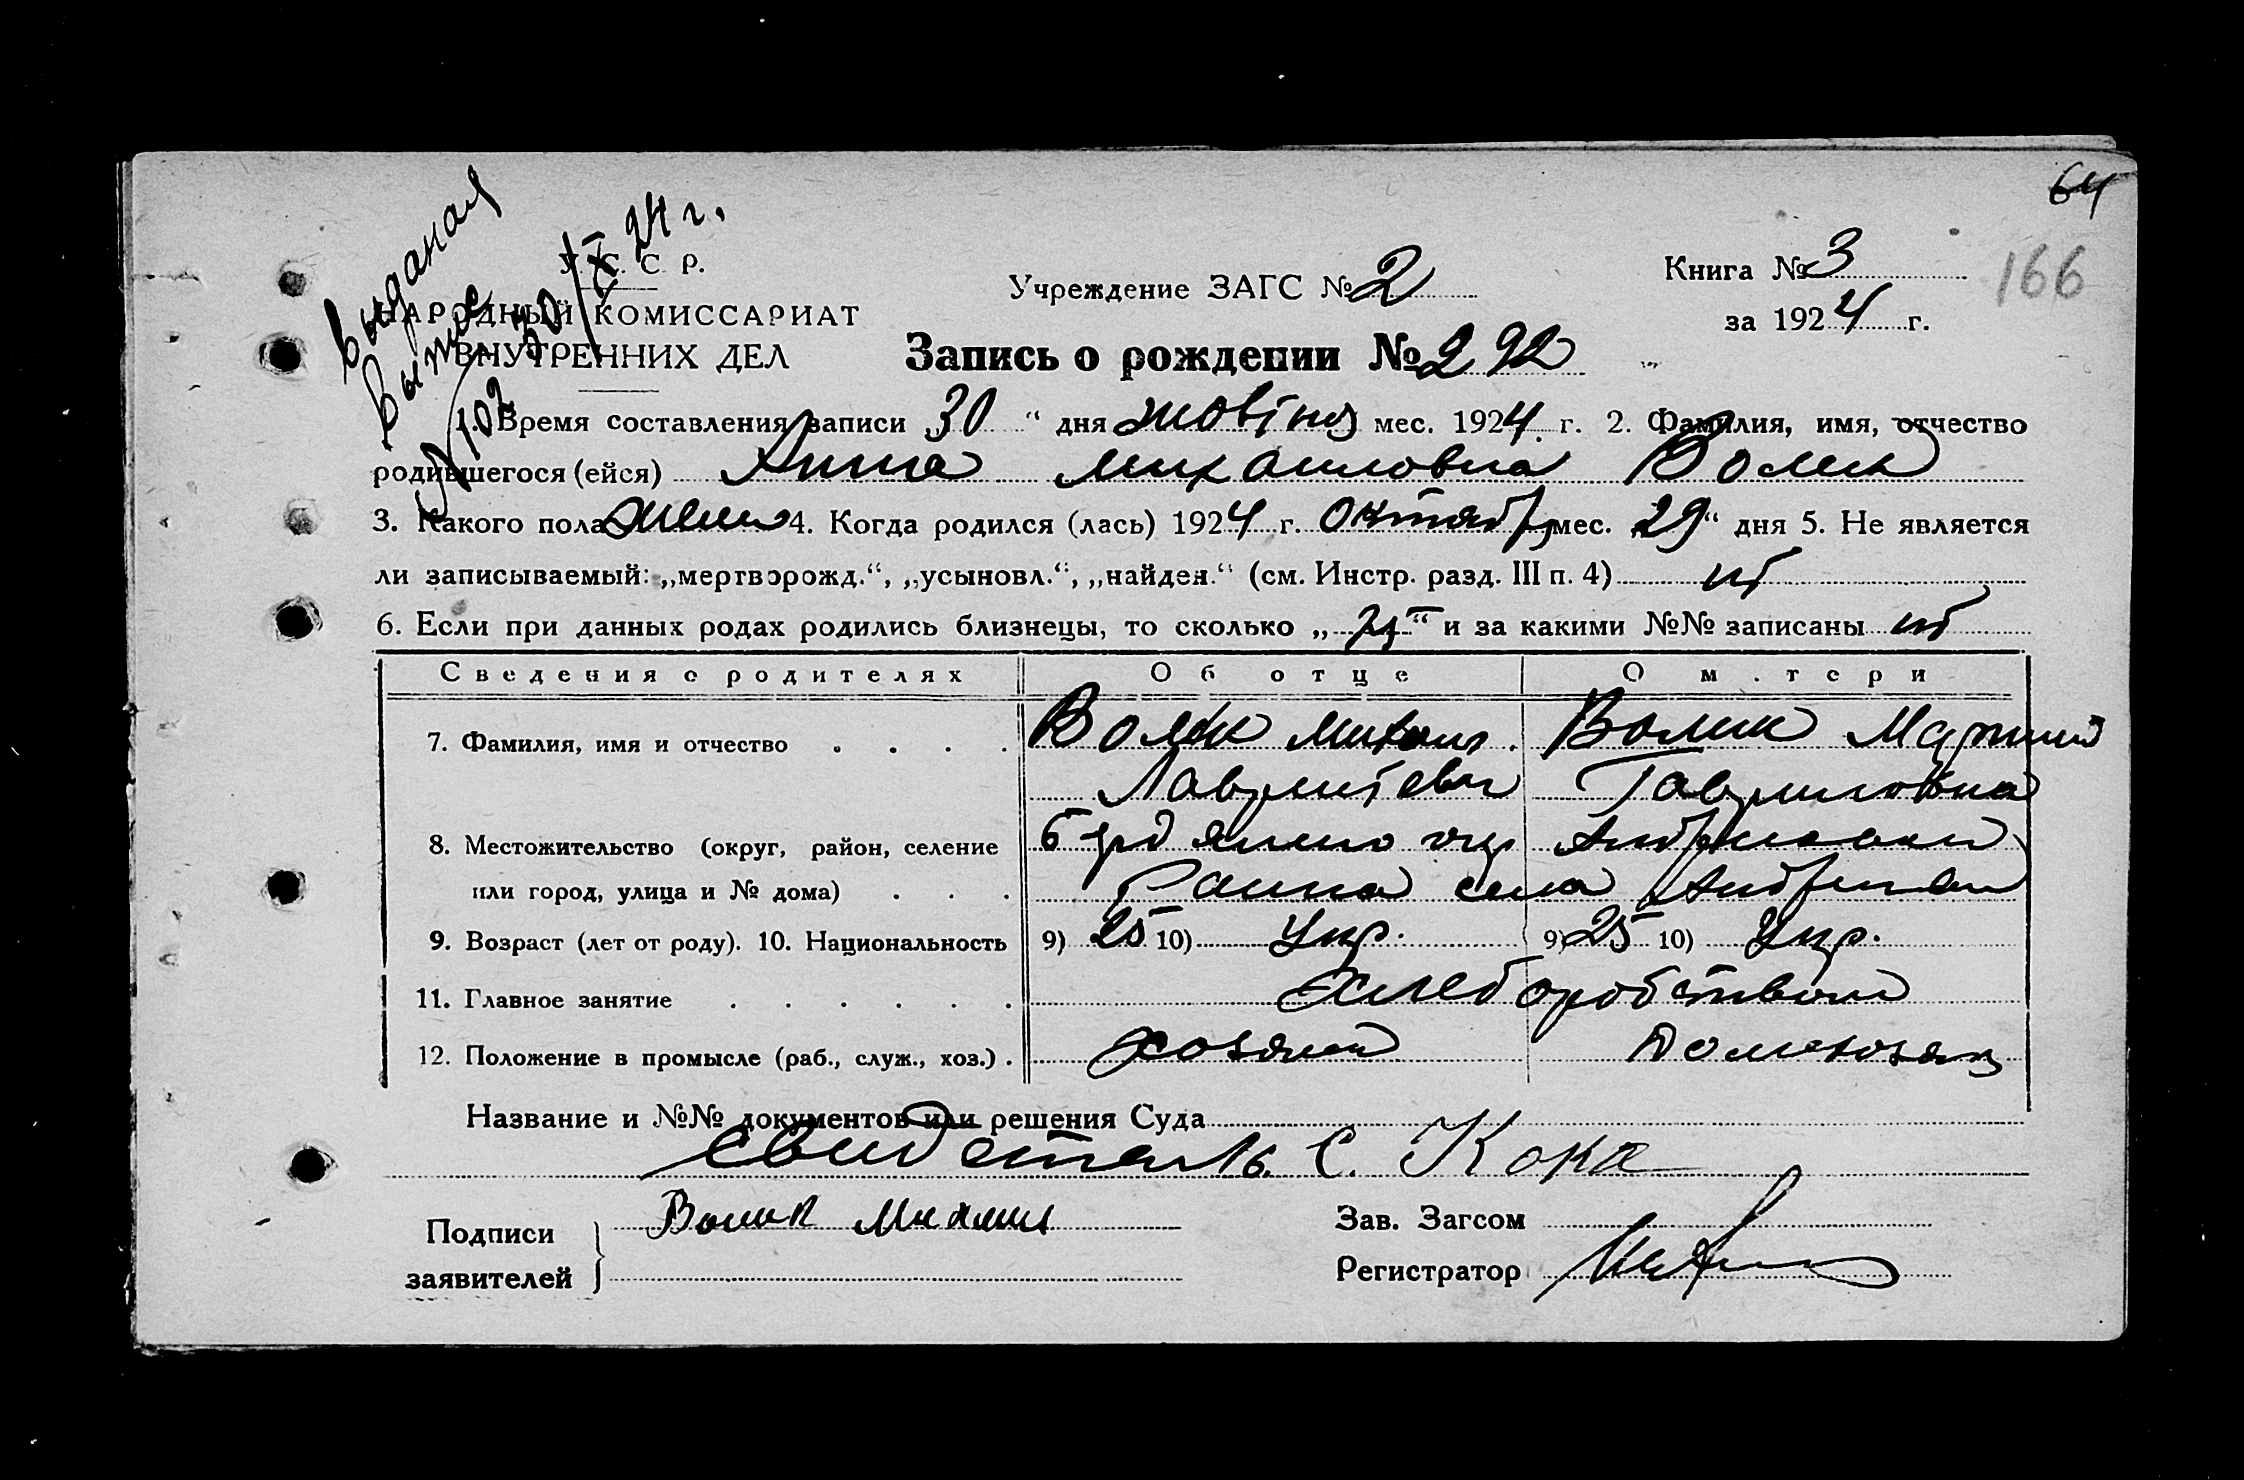 64
166
Выданая
Выпис
№ 102 30/X 24 г.
У. С. С. Р.
НАРОДНЫЙ КОМИССАРИАТ
ВНУТРЕННИХ ДЕЛ
Учреждение ЗАГС № 2
Книга № 3
за 1924 г.
Запись о рождении № 292
1. Время составления записи 30 “ дня мес. 1924 г. 2. Фамилия, имя, отчество
родившегося (ейся) Анна Михаиловна Волик
3. Какого пола жен 4. Когда родился (лась) 1924 г. октябр мес. 29“ дня 5. Не является
ли записываемый: „мертворожд.“, „усыновл.“, „найден.“ (см. Инстр. разд. III п. 4)
6. Если при данных родах родились близнецы, то сколько „ “ и за какими №№ записаны
Сведения о родителях Об отце О м.тери
7. Фамилия, имя и отчество . . . . Волик Михаил Волик
Лаврентевич Гавриловна
8. Местожительство (округ, район, селение
или город, улица и № дома) . . . села
9. Возраст (лет от роду). 10. Национальность 9) 25 10) Укр. 9) 25 10) Укр.
11. Главное занятие . . . . . . Хлеборобством
12. Положение в промысле (раб., служ., хоз.) . хозяин Домохозяц
Название и №№ документов или решения Суда
свидетель С. Кока
Подписи
заявителей
Волик Михаил
Зав. Загсом
Регистратор